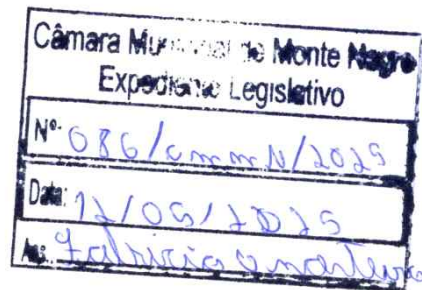 Câmara Municipal de Monte Negro
Expediente Legislativo
Nº 086/cmmN/2025
Data: 12/05/2025
Ass.